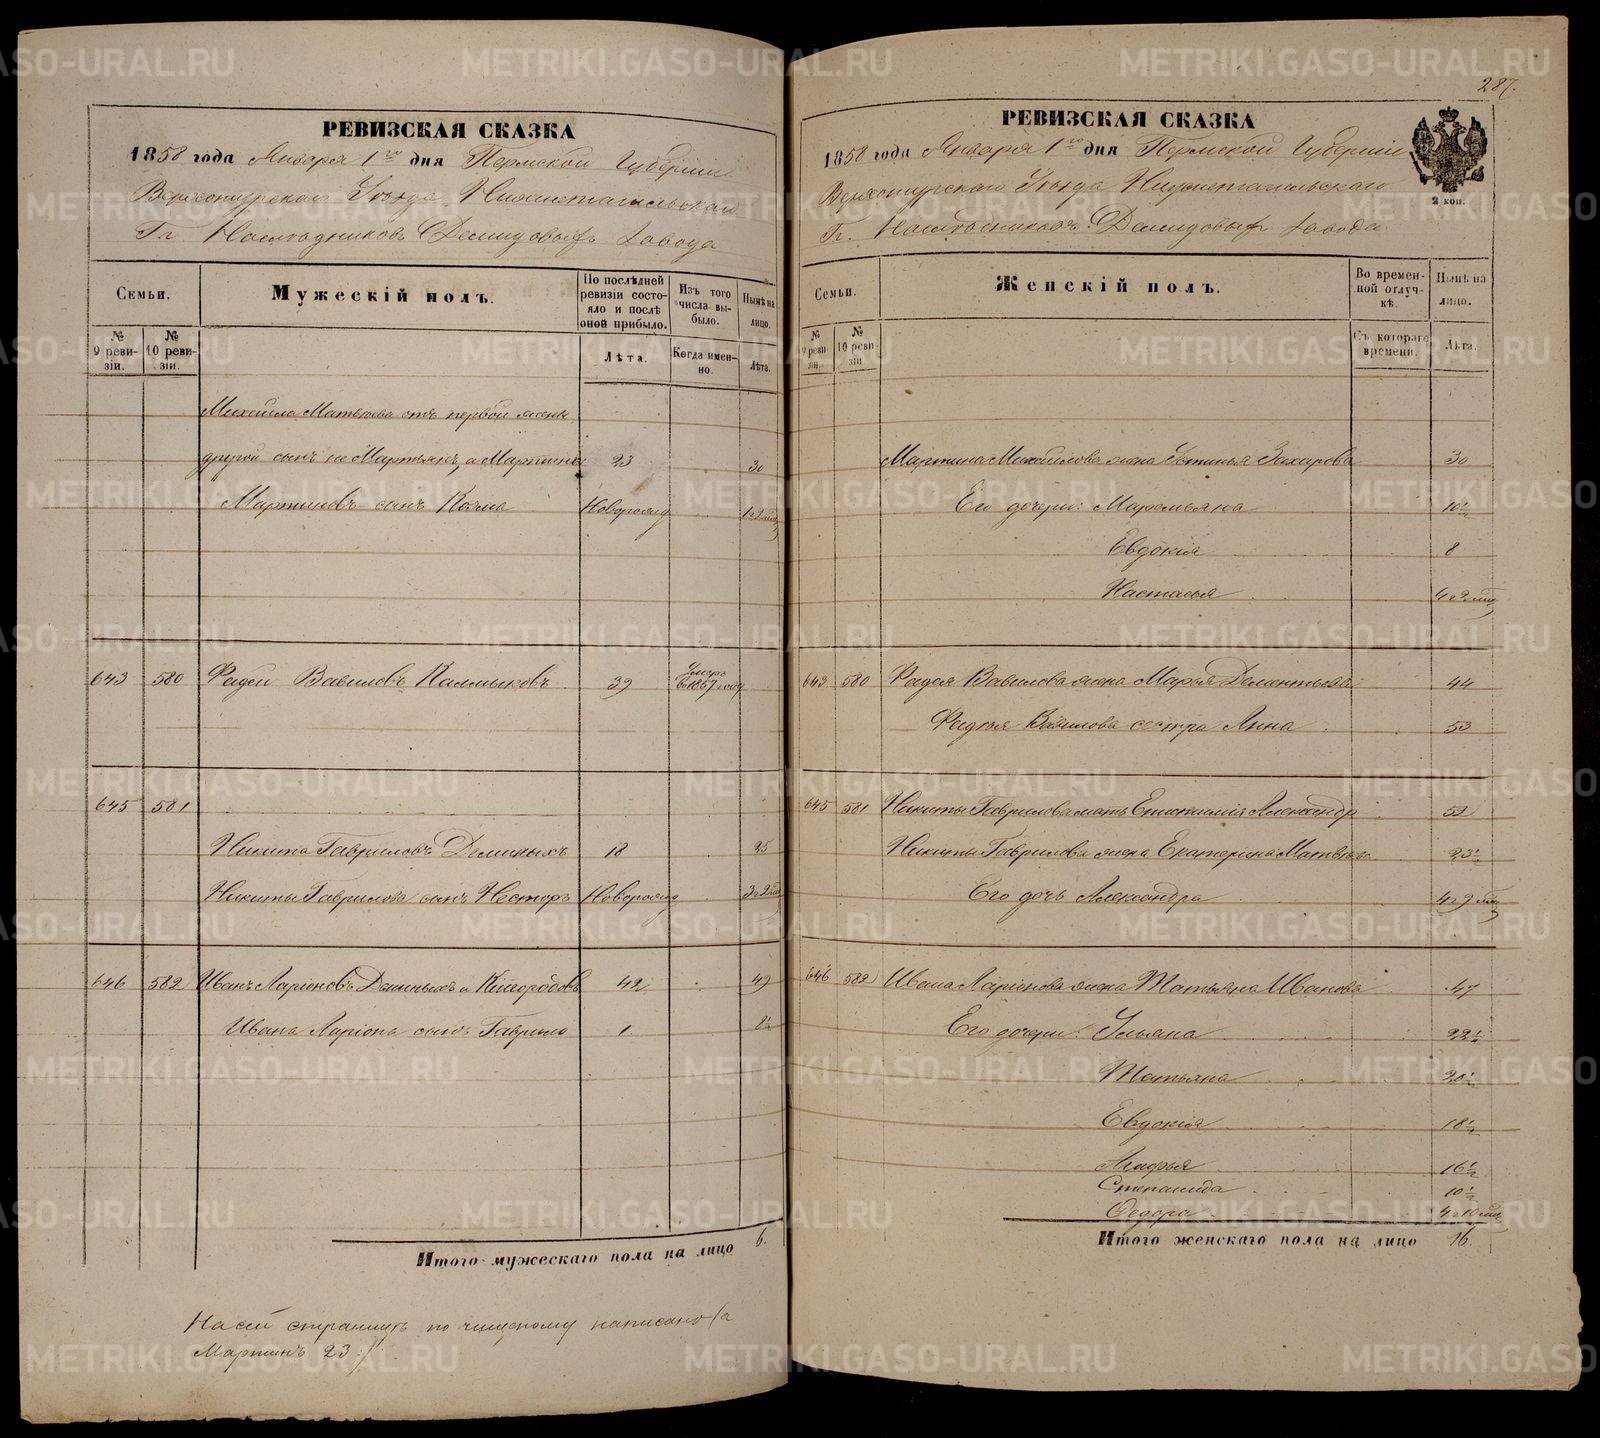 РЕВИЗСКАЯ СКАЗКА
1858 года Января 1го дня Пермской Губерніи
Верхотурскаго Уѣзда Нижнетагильскаго
Гг. Наслѣдниковъ Демидовыхъ завода
Семьи.
Мужескій полъ.
По послѣдней ревизіи состояло и послѣ оной прибыло.
Изъ того числа выбыло.
Нынѣ на лицо.
№ 9 ревизіи.
№ 10 ревизіи.
Лѣта.
Когда именно.
Лѣта.
Михайла Матвѣева отъ первой жены
другой сынъ не Мартьянъ, а Мартинъ 23 30
Мартиновъ сынъ Козма Новорожд
643 580 Фадей Вавиловъ Калмыковъ 39 Умеръ въ 1857 году
645 581
Никита Гавриловъ Деминыхъ 18 25
Никиты Гаврилова сынъ Несторъ Новорожд
646 582 Иванъ Ларіоновъ Деминыхъ и 42 49
Ивана Ларіона сынъ Гаврило 1 8½
Итого мужескаго пола на лицо 6.
На сей страницѣ по написано (а
Мартинъ 23:)
287.
РЕВИЗСКАЯ СКАЗКА
1858 года Января 1го дня Пермской Губерніи
Верхотурскаго Уѣзда Нижнетагильскаго
Гг. Наслѣдниковъ Демидовыхъ завода
2 коп.
Семьи.
Женскій полъ.
Во временной отлучкѣ.
Нынѣ на лицо.
№ 9 ревизіи.
№ 10 ревизіи.
Съ котораго времени.
Лѣта.
Мартина Михайлова жена Устинья Захарова 30
Его дочери: Маремьяна 10½
Евдокія 8
Настасья
643 580 Фадея Вавилова жена Марья Дементьева 44
Фадея Вавилова сестра Анна 53
645 581 Никиты Гаврилова мать Епистимія Александр 52
Никиты Гаврилова жена Екатерина Матвѣева 23½
Его дочь Александра
646 582 Ивана Ларіонова жена Татьяна Иванова 47
Его дочери: Ульяна 22½
Татьяна 20½
Евдокія 18½
Агафья 16½
Степанида 10½
Ѳедора
Итого женскаго пола на лицо 16.
METRIKI.GASO-URAL.RU